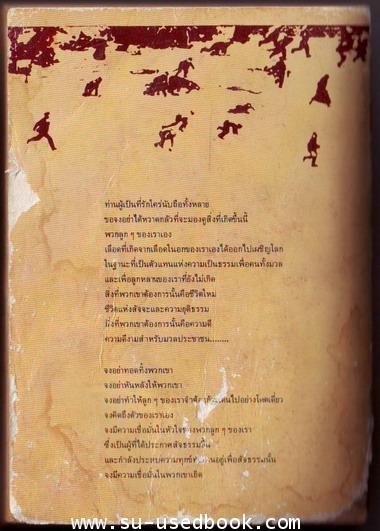 ท่านผู้เป็นที่รักใคร่นับถือทั้งหลาย
ขอจงอย่าได้หวาดกลัวที่จะมองดูสิ่งที่เกิดขึ้นนี้
พวกลูก ๆ ของเราเอง
เลือดที่เกิดจากเลือดในอกของเราเองได้ออกไปเผชิญโลก
ในฐานะที่เป็นตัวแทนแห่งความเป็นธรรมเพื่อคนทั้งมวล
และเพื่อลูกหลานของเราที่ยังไม่เกิด
สิ่งที่พวกเขาต้องการนั้นคือชีวิตใหม่
ชีวิตแห่งสัจจะและความยุติธรรม
สิ่งที่พวกเขาต้องการนั้นคือความดี
ความดีงามสำหรับมวลประชาชน........
จงอย่าทอดทิ้งพวกเขา
จงอย่าหันหลังให้พวกเขา
จงอย่าทำให้ลูก ๆ ของเราจำต้องเดินไปอย่างโดดเดี่ยว
จงคิดถึงตัวของเราเอง
จงมีความเชื่อมั่นในหัวใจของพวกลูก ๆ ของเรา
ซึ่งเป็นผู้ที่ได้ประกาศสัจธรรมขึ้น
และกำลังประสบความทุกข์ อยู่เพื่อสัจธรรมนั้น
จงมีความเชื่อมั่นในพวกเขาเถิด
www.su-usedbook.com